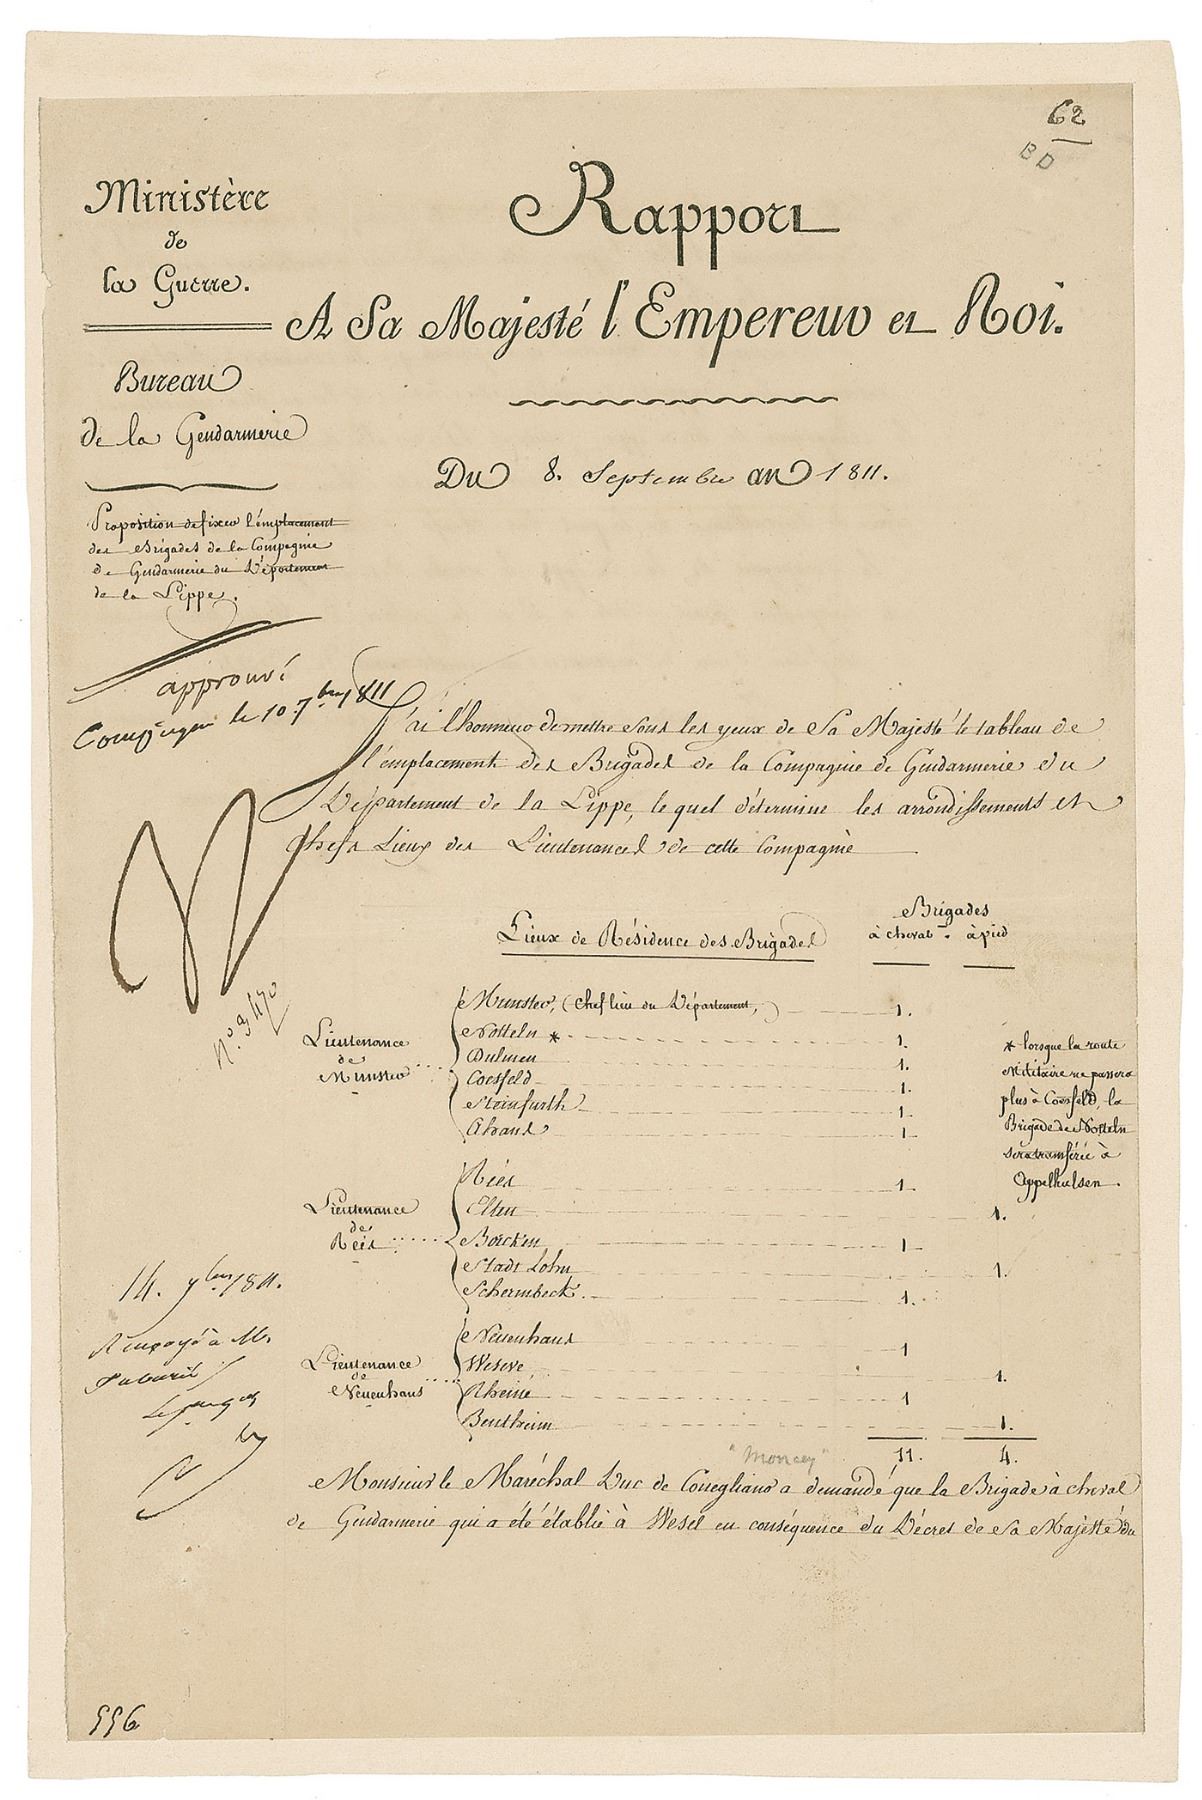 62
BD
Ministère
de
la Guerre.
Bureau
de la Gendarmerie
Proposition de fixer l'emplacement
des Brigades de la Compagnie
de Gendarmerie du Département
de la Lippe.
approuvé
le 10. 7bre 1811
Rapport
A Sa Majesté l'Empereur et Roi.
Du 8. Septembre an 1811.
J'ai l'honneur de mettre sous les yeux de Sa Majesté le tableau de
l'emplacement des Brigades de la Compagnie de Gendarmerie du
Département de la Lippe, le quel détermine les arrondissements et
Chefs Lieux des Lieutenances de cette Compagnie
No. 9470
Lieux de Résidence des Brigades
Brigades
à cheval. à pied
Lieutenance
de
Munster
Munster, (chef lieu du Département,) 1.
Notteln * 1.
Dulmen 1.
Coesfeld 1.
Steinfurth 1.
Ahaus 1.
* lorsque la route
Militaire ne passera
plus à Coesfeld, la
Brigade de Notteln
sera transférée à
Appelhulsen.
Lieutenance
de
Réés
Réés 1.
Elten 1.
Borcken 1
Stadt Lohn 1.
Schermbeck 1.
Lieutenance
de
Neuenhaus
Neuenhaus 1
Weseve 1.
Rheine 1
Bentheim 1.
11. 4.
14. 7bre 1811.
Renvoyé à Mr
"Moncey"
Monsieur le Maréchal Duc de Conegliano a demandé que la Brigade à cheval
de Gendarmerie qui a été établie à Wesel en conséquence du Décret de Sa Majesté du
556